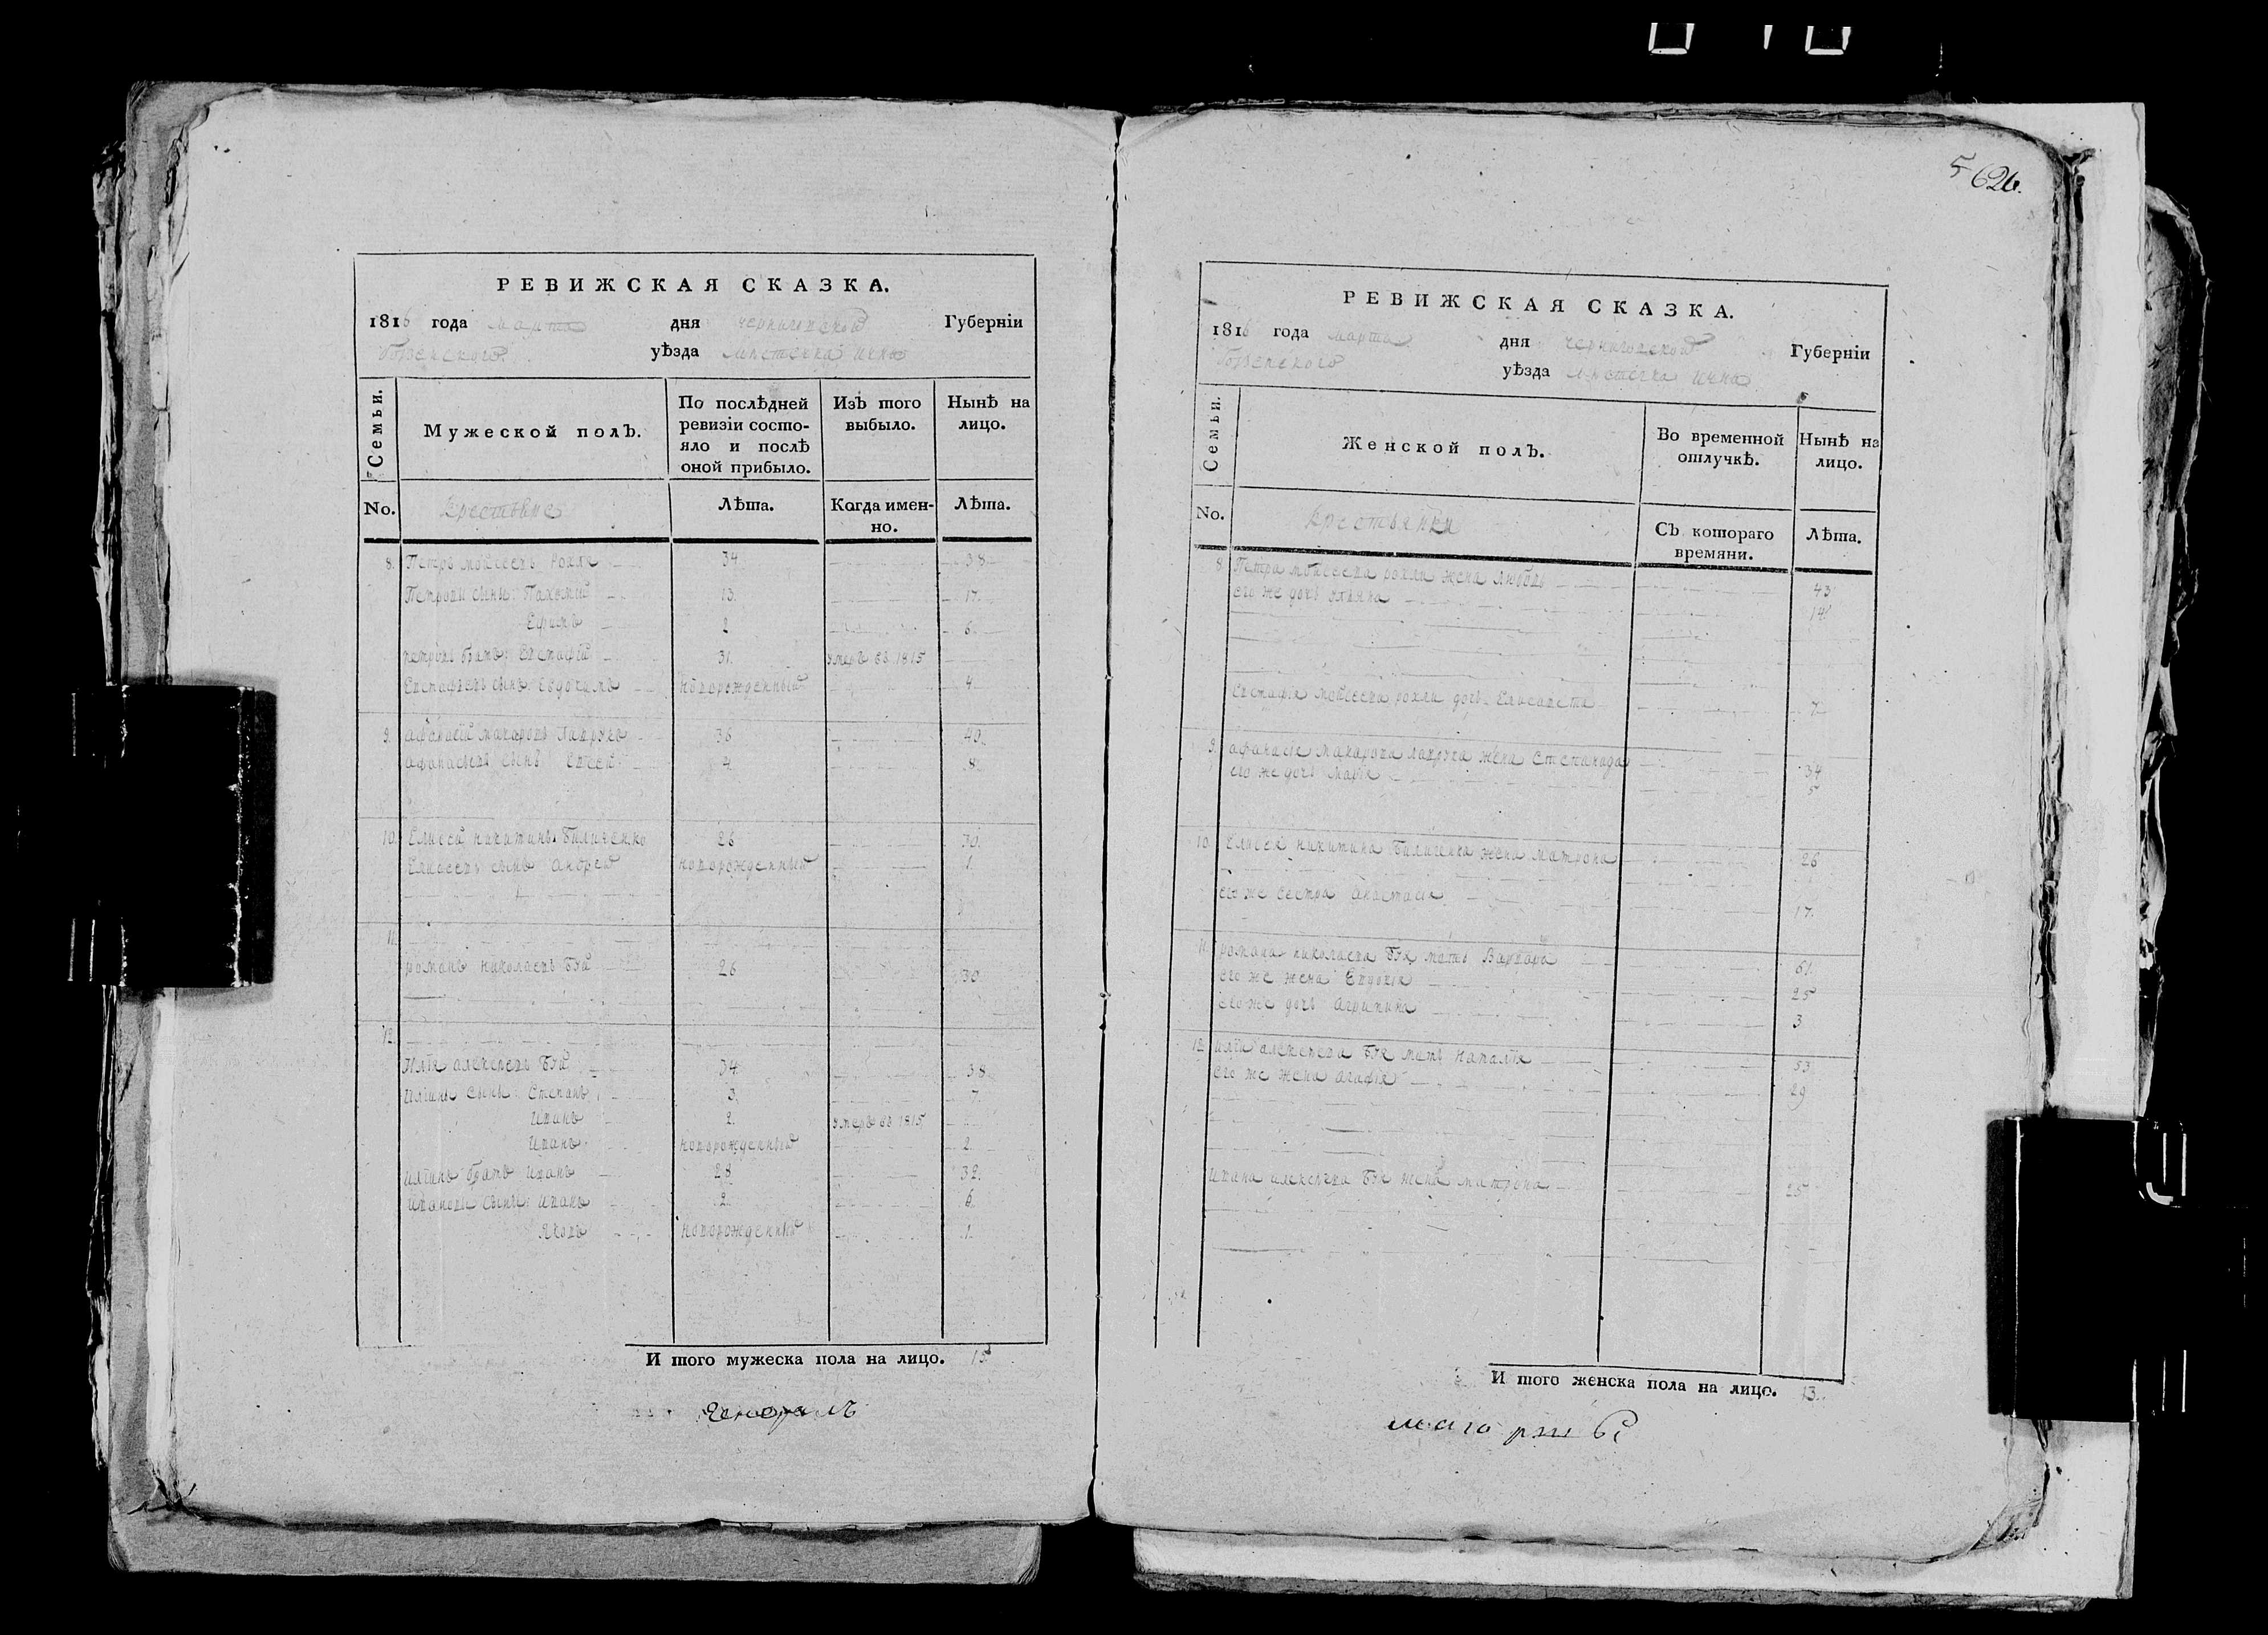 5 626.
РЕВИЖСКАЯ СКАЗКА.
1816 года марта дня черниговской Губерніи
Борзенского уѣзда мѣстечка ична
Семьи.
Мужеской полъ.
По послѣдней ревизіи состояло и послѣ оной прибыло.
Изъ того выбыло.
Нынѣ на лицо.
No. крестьяне Лѣта. Когда именно. Лѣта.
8. Петръ моисеевъ рохля 34. 38
Петровы сыны: Пахомій 13. 17.
Ефимъ 2 6.
петровъ братъ Евстафій 31. умеръ въ 1815
Евстафіевъ сынъ Евдокимъ новорожденный 4.
9. афанасій макаровъ 36 40.
афанасіевъ сынъ 4 8.
10. Елисей никитинъ Биличенко 26 30.
Елисеевъ сынъ андрей новорожденный 1.
11.
романъ николаевъ Буй 26 30
12.
Илія алексеевъ Буй 34. 38
иліины сыны: Степанъ 3. 7
Иванъ 2. умеръ въ 1815.
Иванъ новорожденный 2.
иліинъ братъ иванъ 28 32.
ивановы сыны: иванъ 2. 6.
Яковъ новорожденный 1.
И того мужеска пола на лицо. 15
РЕВИЖСКАЯ СКАЗКА.
1816 года марта дня черниговской Губерніи
Борзенского уѣзда мѣстечка ична
Семьи.
Женской полъ.
Во временной отлучкѣ.
Нынѣ на лицо.
No. крестьянки Съ котораго времяни. Лѣта.
8 Петра моисеева рохли жена любовь 43
его же дочь 14
Евстафія моисеева рохли дочь Елисавета 7
9. афанасія макарова жена Степанида 34
его же дочь марія 5
10 Елисея никитина Биличенка жена матрона 26
его же сестра анастасія 17.
11. романа николаева Буя мать Варвара 61.
его же жена Евдокія 25
его же дочь агрипина 3
12 иліи алексеева Буя мать наталія 53
его же жена агафія 29
ивана алексеева Буя жена матрона 25
И того женска пола на лицо. 13.